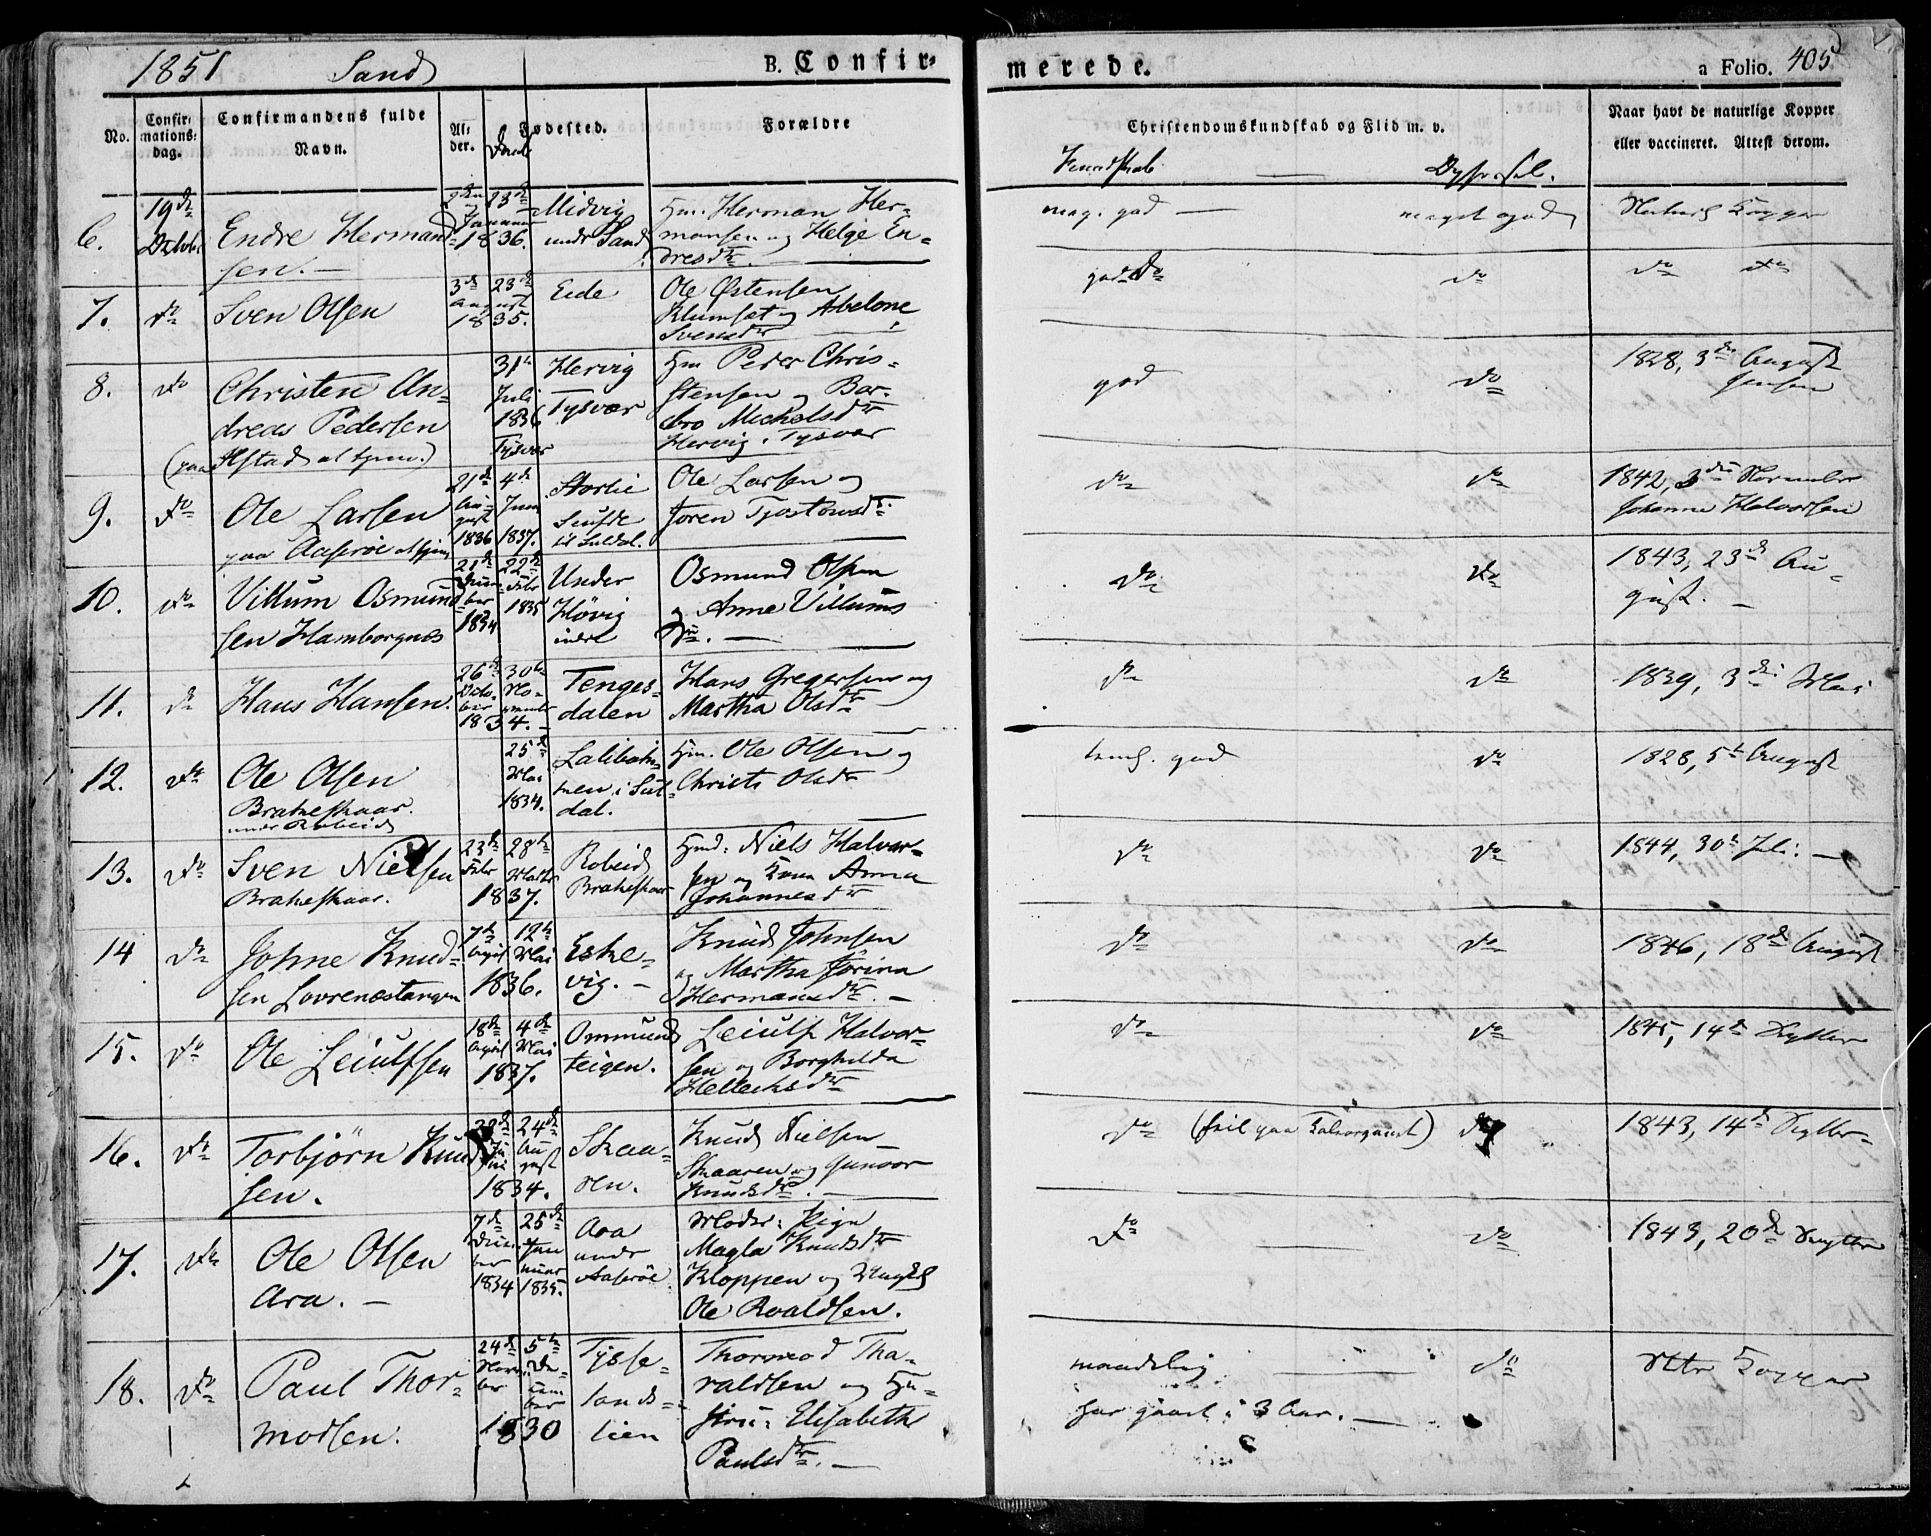 1851 Sand B. Confir-
merede. a Folio. 405
No.
Confir-
mations-
dag.
Confirmandens fulde
Navn.
Al-
der.
Daab
Fødested.
Forældre
Christendomskundskab og Flid m. v.
Kundskab —
Naar havt de naturlige Kopper
eller vaccineret. Attest derom.
6.
19de
Endre Hermand-
sen. —
23de
Januar
1836.
Midvig
under Sand
Hm. Herman Her-
mansen og Helge En-
dresdtr.
meg. god —
meget god
Kopper
7.
do
Sven Olsen
3de 23de
August
1835.
Eide
Ole Østensen
Klumset og Abelone
Svensdtr
god
do
do do
8.
do
Christen An-
dreas Pedersen
(paa Ilstad at tjene.)
31te
Juli
1836
Tysvær
Hervig
Tysvær
Hm Peder Chris-
stensen og Bar-
bro Michelsdtr
Hervig i Tysvær
god
do
1828, 3die August
Jensen
9.
do
Ole Larsen
paa Aaserøe at tjene
21de
Au-
gust
1836
4de
Juni
1837.
Storlie
til Suldal.
Ole Larsen og
Joren Tjostowsdtr.
do
do
1842, 3die November
Johanne Halvorsen
10.
do
Villum Osmund-
sen Hamborgnæs
21de
ber
1834
22de
Febr
1835
Under
Høvig
indre
Osmund Olsen
og Anne Villums
dtr. —
do
do
1843, 23de Au-
gust. —
11.
do
Hans Hansen.
26de
Octo-
ber
30te
No-
vember
1834.
Tenges-
dalen
Hans Gregersen og
Martha Olsdtr
do
do
1839, 3die Mai
12.
do
Ole Olsen
Brakeskaar.
under Robeid
25de
Mai
1834.
men i Sul-
dal.
Hm. Ole Olsen og
Christi Olsdtr
temlig god
do
1828, 5te August
13.
do
Sven Nielsen
Brakeskaar.
23de
Febr
28de
Marts
1837.
Robeid
Brakeskaar
Hmd: Niels Halvor-
sen og Kone Anna
Johannesdtr
do
do
1844, 30te Juli. —
14
do
Johne Knud-
sen Lovrenæstangen
7de
April
12te
Mai
1836.
Eske-
vig. —
Knud Johnsen
og Martha Jørina
Hermansdtr. —
do
do
1846, 18de August
15.
do
Ole Leiulfsen
18de
April
4de
Mai
1837.
Ommund-
teigen.
Leiulf Halvor-
sen og Borghilda
Hellechsdtr
do
do
1845, 14de Septbr
16.
do
Torbjørn Knud-
sen.
Ju-
ni
24de
Au-
gust
1834.
Skaa-
ren.
Knud Nielsen
Skaaren og Gunvor
Knudsdtr. —
do
(feil paa Taleorganet)
do
1843, 14de Septbr
17.
do
Ole Olsen
Ara. —
7de
Decem-
ber
1834
25de
Jan-
uar
1835.
Ara
under
Aaserøe
Moder: Pige
Magla Knudsdtr
Kloppen og
Ole Roaldsen.
do
do
1843, 20de Septbr
18.
do
Paul Thor-
modsen.
24de
Novem-
ber
5te
De-
cem-
ber
1830
Tysse-
lands-
lien
Thormod Tha-
raldsen og Hu-
stru: Elisabeth
Paulsdtr. —
maadelig
har gaaet i 3 Aar. —
do
Kopper